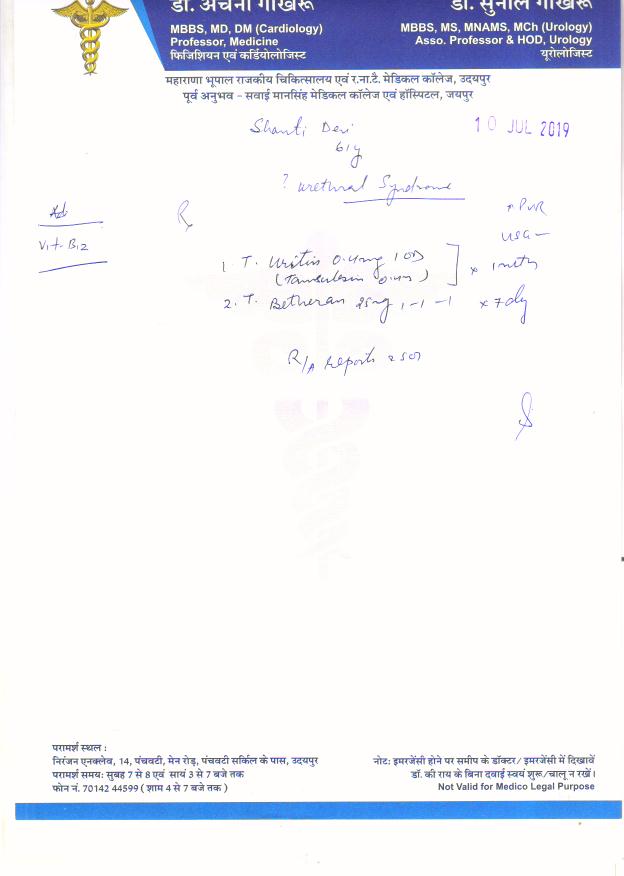 डॉ. अर्चना गोखरू
MBBS, MD, DM (Cardiology)
Professor, Medicine
फिजिशियन एवं कर्डियोलोजिस्ट
डॉ. सुनील गोखरू
MBBS, MS, MNAMS, MCh (Urology)
Asso. Professor & HOD, Urology
यूरोलोजिस्ट
महाराणा भूपाल राजकीय चिकित्सालय एवं र.ना.टै. मेडिकल कॉलेज, उदयपुर
पूर्व अनुभव – सवाई मानसिंह मेडिकल कॉलेज एवं हॉस्पिटल, जयपुर
Shanti Devi
10 JUL 2019
61y
? Urethral Syndrome
PVR
USG –
Adv
Vit-B12
Rx
1. T. 0.4mg 1 OD
(Tamsulosin 0.4m) x 1 mth
2. T. 25mg 1-1-1 x 7 dy
R/A Reports
परामर्श स्थल :
निरंजन एनक्लेव, 14, पंचवटी, मेन रोड़, पंचवटी सर्किल के पास, उदयपुर
परामर्श समय: सुबह 7 से 8 एवं सायं 3 से 7 बजे तक
फोन नं. 70142 44599 ( शाम 4 से 7 बजे तक )
नोट: इमरजेंसी होने पर समीप के डॉक्टर/ इमरजेंसी में दिखावें
डॉ. की राय के बिना दवाई स्वयं शुरू/चालू न रखें।
Not Valid for Medico Legal Purpose